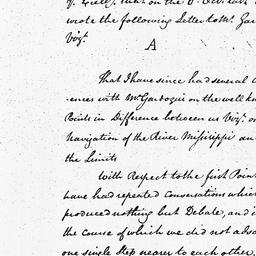 wrote the following Letter to Mr. Gar
Vizt.
A
That I have since had several C
-ences with Mr. Gardoqui on the well k
Points in Difference between us Vizt. o
Navigation of the River Mississippi an
the Limits
With Respect to the first Poin
have had repeated Conversations which
produced nothing but Debate, and i
the course of which we did not adva
one single Step nearer to each other,